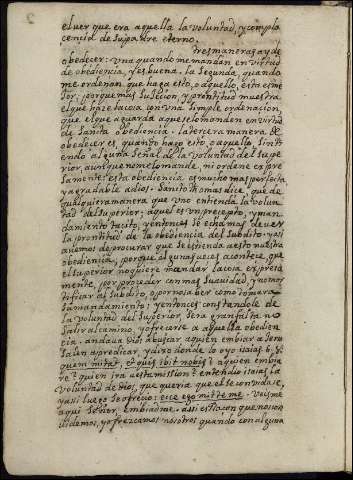 el ver que era aquella la voluntad, y compla
cencia de su padre eterno.
Tres maneras ay de
obedecer: Una quando me mandan en virtud
de obediencia, y es buena. la segunda, quando
me ordenan que haga esto, o aquello, esta es me
jor; porque mas sujecion y prontitud muestra
el que haze la cosa con una simple ordenacion,
que el que aguarda a que se lo manden en virtud
de Santa obediencia. la tercera manera de
obedecer es quando hago esto, o aquello, sinti
endo alguna señal de la voluntad del supe
rior, aunque no me lo mande, ni ordene expre
samente: esta obediencia es mucho mas perfecta,
y agradable a dios. Santo thomas dice, que de
qualquiera manera que uno entienda la volun
tad del superior, aquel es un precepto, y man
damiento tacito, y entonces se echa mas de ver
la prontitud de la obediencia del subdito. y assi
avemos de procurar que se estienda a esto nuestra
obediencia, porque algunas veces acontece, que
el superior no quiere mandar la cosa expresa
mente, por proceder con mas suavidad, y no mor
tificar al subdito, o por no saber como tomara
su mandamiento; y entonces constandole de
la voluntad del superior, sera gran falta no
salir al camino, y ofrecerse a aquella obedien
cia. andava dios a buscar a quien embiar a Jeru
salen a predicar, y dixo donde lo oyo isaias 6, 8:
quem mitam, et quis ibit nobis? a quien embia
re? quien ira a esta mission? entendio isaias la
voluntad de dios, que queria que el se convidase,
y assi luego se ofrecio: ecce ego mitte me. Veisme
aqui Señor, embiadme. assi es la con que nosotros
uidemos, y ofrezcamos nosotros quando con alguna